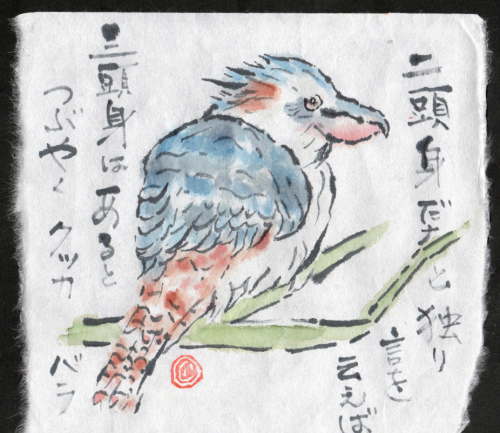 二頭身だナと独り
言を
云えば
三頭身はあると
つぶやくクッカ
バラ